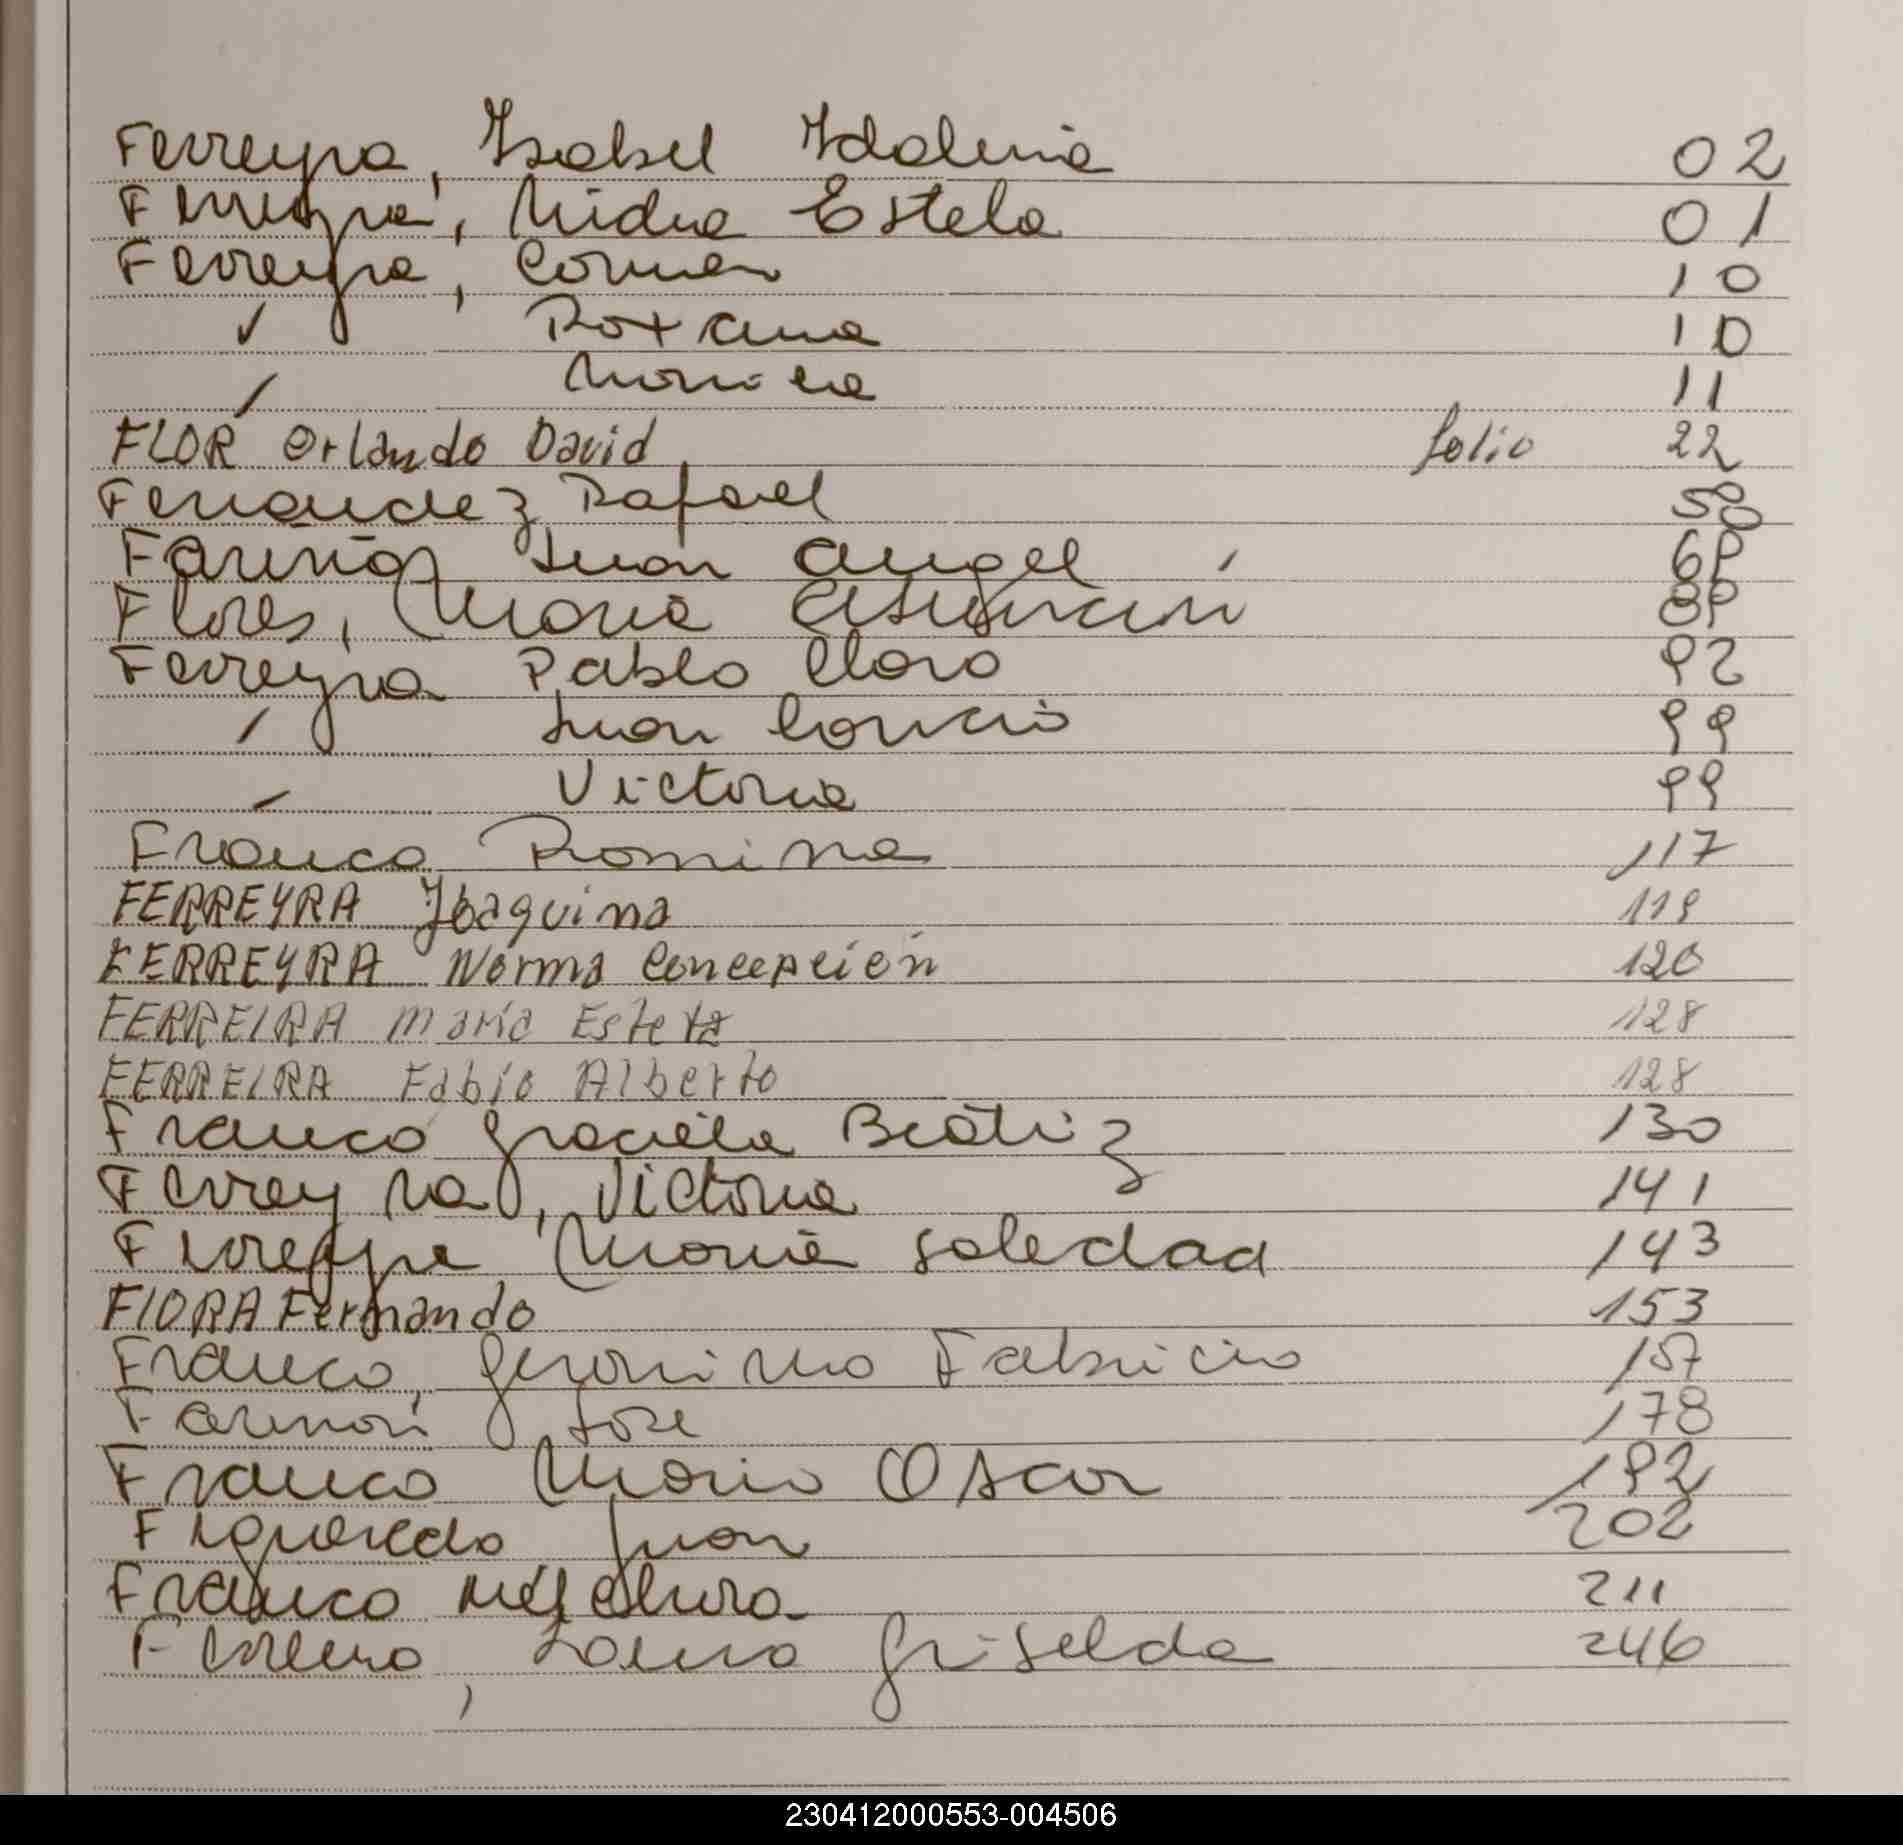 Ferreyra, Isabel Idalina 02
Ferreyra, Nidia Estela 01
Ferreyra, Carmen 10
✓ Roxana 10
/ Monica 11
FLOR Orlando David folio 22
Fernandez Rafael 58
Fariña Juan Angel 69
Flores, Maria Asunción 89
Ferreyra Pablo Claro 92
/ Juan 99
/ Victoria 99
Franco Romina 117
FERREYRA Joaquina 119
FERREYRA Norma Concepción 120
FERREIRA Maria Estela 128
FERREIRA Fabio Alberto 128
Franco Graciela Beatriz 130
Ferreyra, Victoria 141
Ferreyra Maria Soledad 143
FIORA Fernando 153
Franco, Geronimo Fabricio 157
José 178
Franco Mario Oscar 192
Figueredo Juan 202
Franco 211
Laura Griselda 246
230412000553-004506